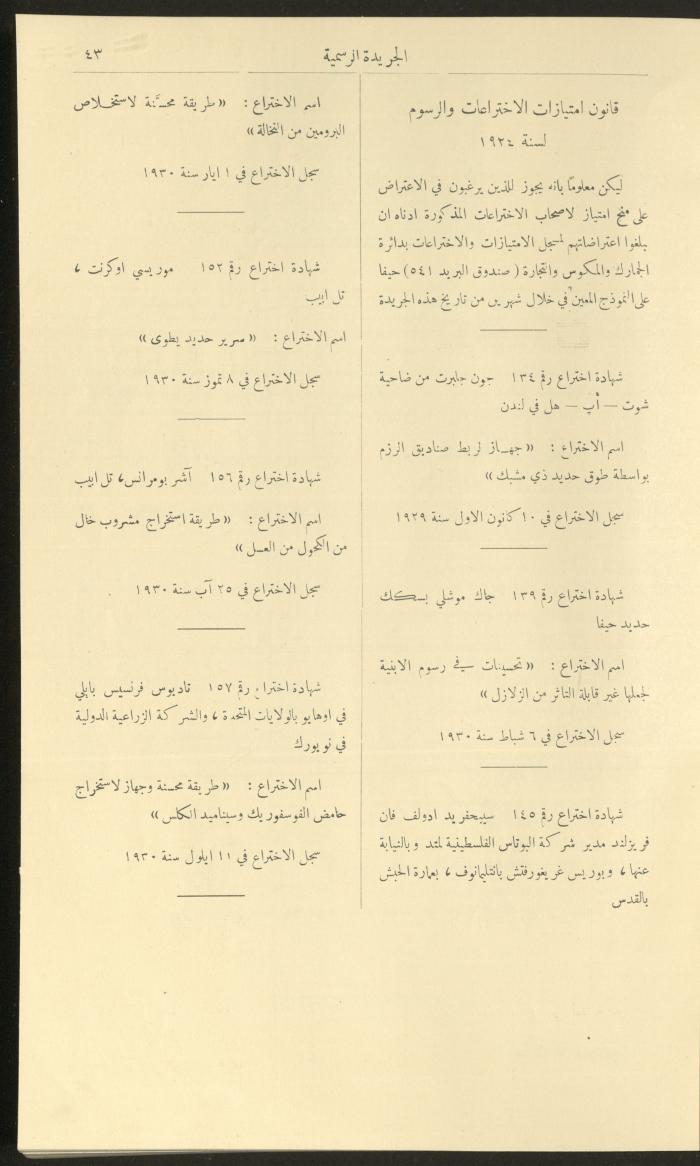 الجريدة الرسمية
٤٣
قانون امتيازات الاختراعات والرسوم
لسنة ١٩٢٤
ليكن معلوماً بانه يجوز للذين يرغبون في الاعتراض
على منح امتياز لاصحاب الاختراعات المذكورة ادناه ان
يبلغوا اعتراضاتهم لمسجل الامتيازات والاختراعات بدائرة
الجمارك والمكوس والتجارة (صندوق البريد ٥٤١) حيفا
على النموذج المعين في خلال شهرين من تاريخ هذه الجريدة
شهادة اختراع رقم ١٣٤ جون جلبرت من ضاحية
شوت — أپ — هل في لندن
اسم الاختراع : « جهاز لربط صناديق الرزم
بواسطة طوق حديد ذي مشبك »
سجل الاختراع في ١٠ كانون الاول سنة ١٩٢٩
شهادة اختراع رقم ١٣٩ جاك موشلي بسكك
حديد حيفا
اسم الاختراع : « تحسينات في رسوم الابنية
لجعلها غير قابلة التاثر من الزلازل »
سجل الاختراع في ٦ شباط سنة ١٩٣٠
شهادة اختراع رقم ١٤٥ سيجفريد ادولف فان
فريزلند مدير شركة البوتاس الفلسطينية لمتد وبالنيابة
عنها ، وبوريس غريغورفتش بانتليمانوف ، بعمارة الحبش
بالقدس
اسم الاختراع : « طريقة محسَّنة لاستخلاص
البرومين من النخالة »
سجل الاختراع في ١ ايار سنة ١٩٣٠
شهادة اختراع رقم ١٥٢ موريسي اوكرنت ،
تل ابيب
اسم الاختراع : « سرير حديد يطوى »
سجل الاختراع في ٨ تموز سنة ١٩٣٠
شهادة اختراع رقم ١٥٦ آشر بومرانس، تل ابيب
اسم الاختراع : « طريقة استخراج مشروب خال
من الكحول من العسل »
سجل الاختراع في ٢٥ آب سنة ١٩٣٠
شهادة اختراع رقم ١٥٧ تاديوس فرنسيس بايلي
في اوهايو بالولايات المتحدة ، والشركة الزراعية الدولية
في نويورك
اسم الاختراع : « طريقة محسنة وجهاز لاستخراج
حامض الفوسفوريك وسيناميد الكلس »
سجل الاختراع في ١١ ايلول سنة ١٩٣٠